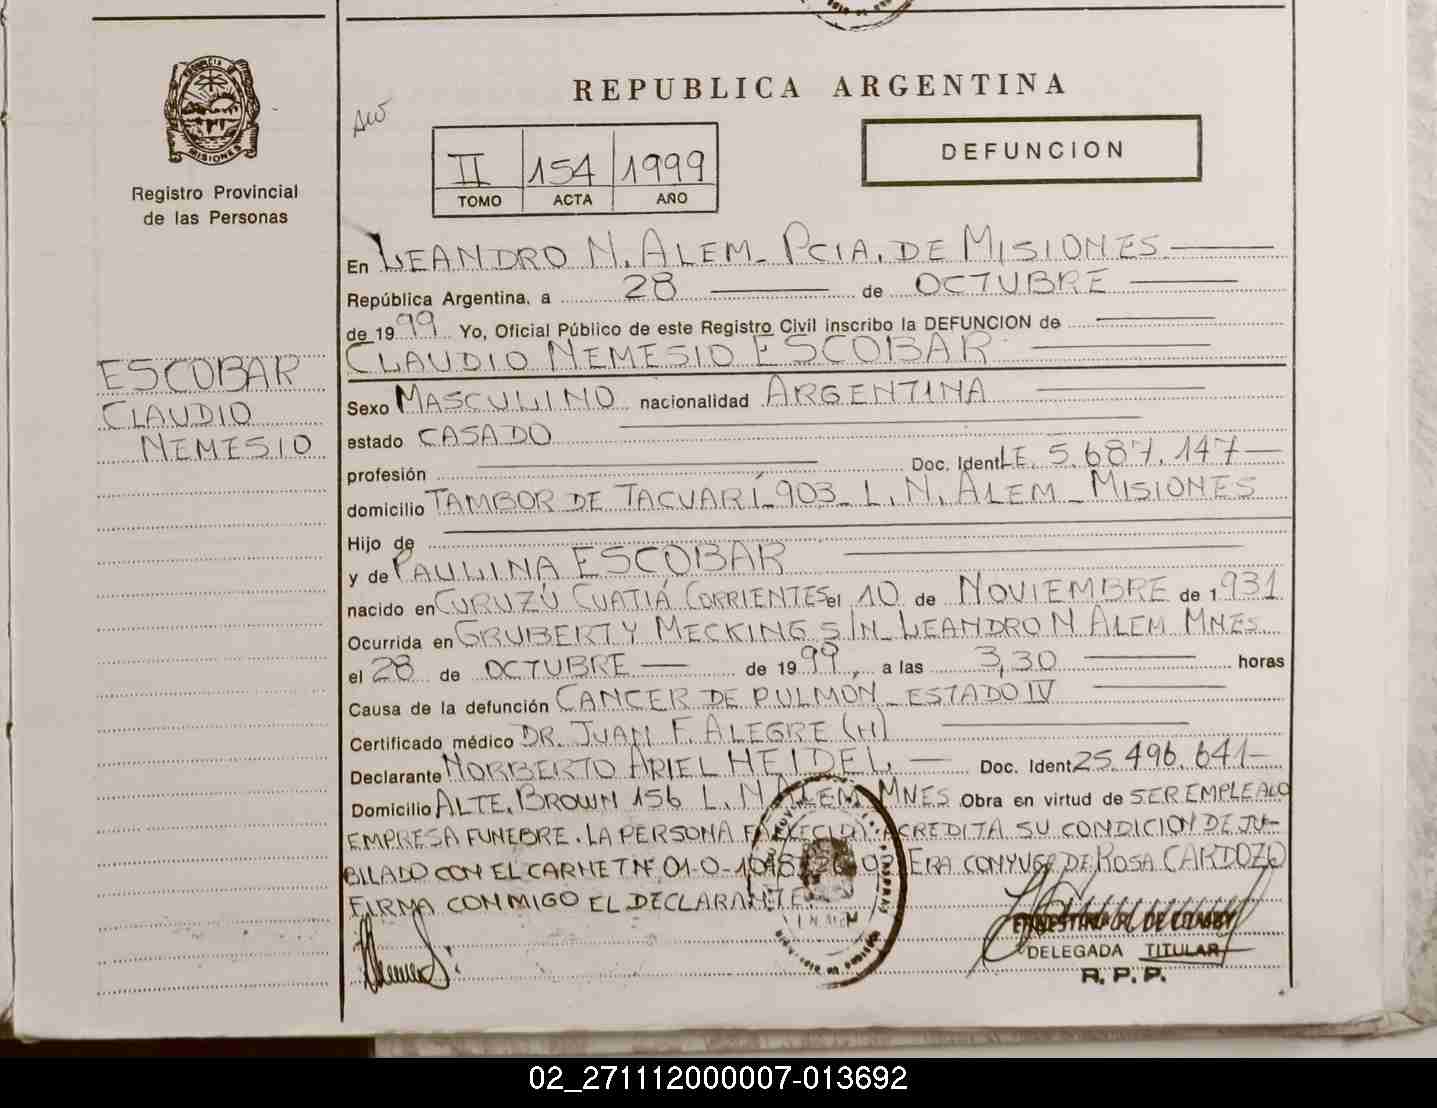 REPUBLICA ARGENTINA
PROVINCIA DE
MISIONES
Registro Provincial
de las Personas
II 154 1999
TOMO ACTA AÑO
DEFUNCION
En LEANDRO N. ALEM - PCIA. DE MISIONES
República Argentina, a 28 de OCTUBRE
de 1999 Yo, Oficial Público de este Registro Civil inscribo la DEFUNCION de
CLAUDIO NEMESIO ESCOBAR
ESCOBAR
CLAUDIO
NEMESIO
Sexo MASCULINO nacionalidad ARGENTINA
estado CASADO
profesión Doc. Ident L.E. 5.687.147
domicilio TAMBOR DE TACUARÍ - 903 - L.N. ALEM - MISIONES
Hijo de
y de PAULINA ESCOBAR
nacido en CURUZÚ CUATIÁ CORRIENTES el 10 de NOVIEMBRE de 1931
Ocurrida en GRUBERT Y MECKING S/N - LEANDRO N ALEM MNES
el 28 de OCTUBRE de 1999, a las 3,30 horas
Causa de la defunción CANCER DE PULMON - ESTADO IV
Certificado médico DR. JUAN F. ALEGRE (H)
Declarante NORBERTO ARIEL HEIDEL Doc. Ident 25.496.641
Domicilio ALTE. BROWN 156 L. N ALEM MNES Obra en virtud de SER EMPLEADO
EMPRESA FUNEBRE. LA PERSONA FALLECIDA ACREDITA SU CONDICION DE JU-
BILADO CON EL CARNET Nº 01-0- ERA CONYUGE DE ROSA CARDOZO
FIRMA CONMIGO EL DECLARANTE.
DELEGADA TITULAR
R.P.P.
02_271112000007-013692